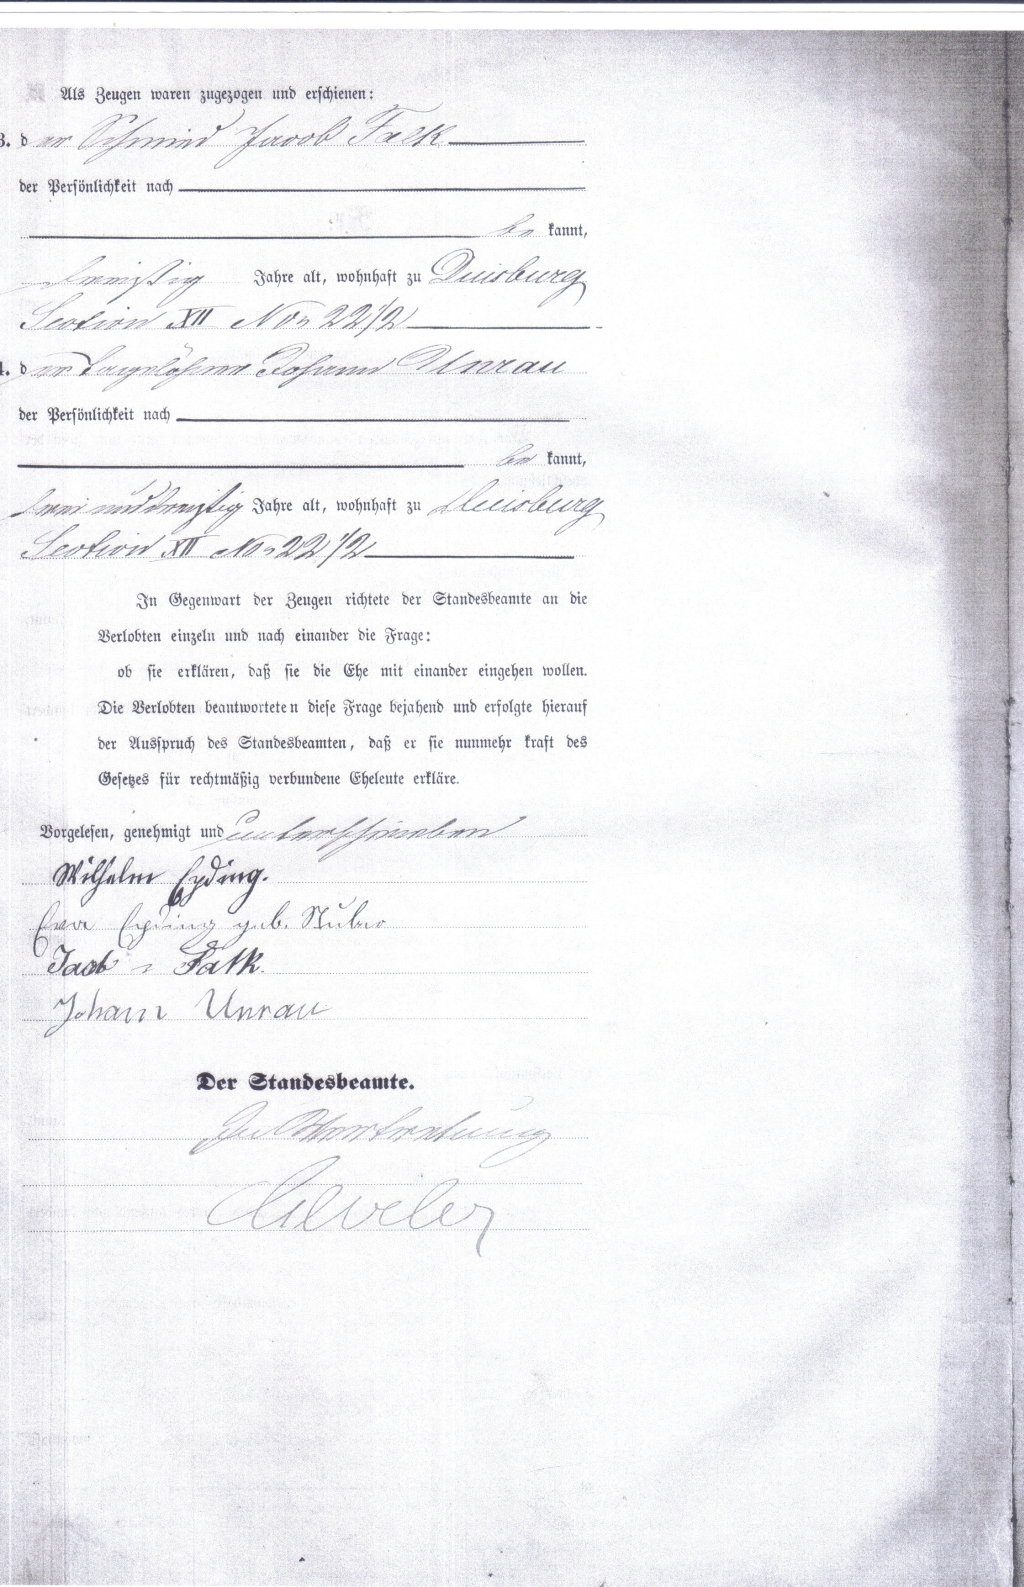 Als Zeugen waren zugezogen und erschienen:
3. der Schmied Jacob Falk
der Persönlichkeit nach
be kannt,
dreißig Jahre alt, wohnhaft zu Duisburg
Section XII No 22 1/2
4. der Tagelöhner Johann Unrau
der Persönlichkeit nach
be kannt,
drei und dreißig Jahre alt, wohnhaft zu Duisburg
Section XII No 22 1/2
In Gegenwart der Zeugen richtete der Standesbeamte an die
Verlobten einzeln und nach einander die Frage:
ob sie erklären, daß sie die Ehe mit einander eingehen wollen.
Die Verlobten beantworteten diese Frage bejahend und erfolgte hierauf
der Ausspruch des Standesbeamten, daß er sie nunmehr kraft des
Gesetzes für rechtmäßig verbundene Eheleute erkläre.
Vorgelesen, genehmigt und unterschrieben
Wilhelm Epding.
Eva Epding geb.
Jacob Falk.
Johann Unrau
Der Standesbeamte.
In Vertretung